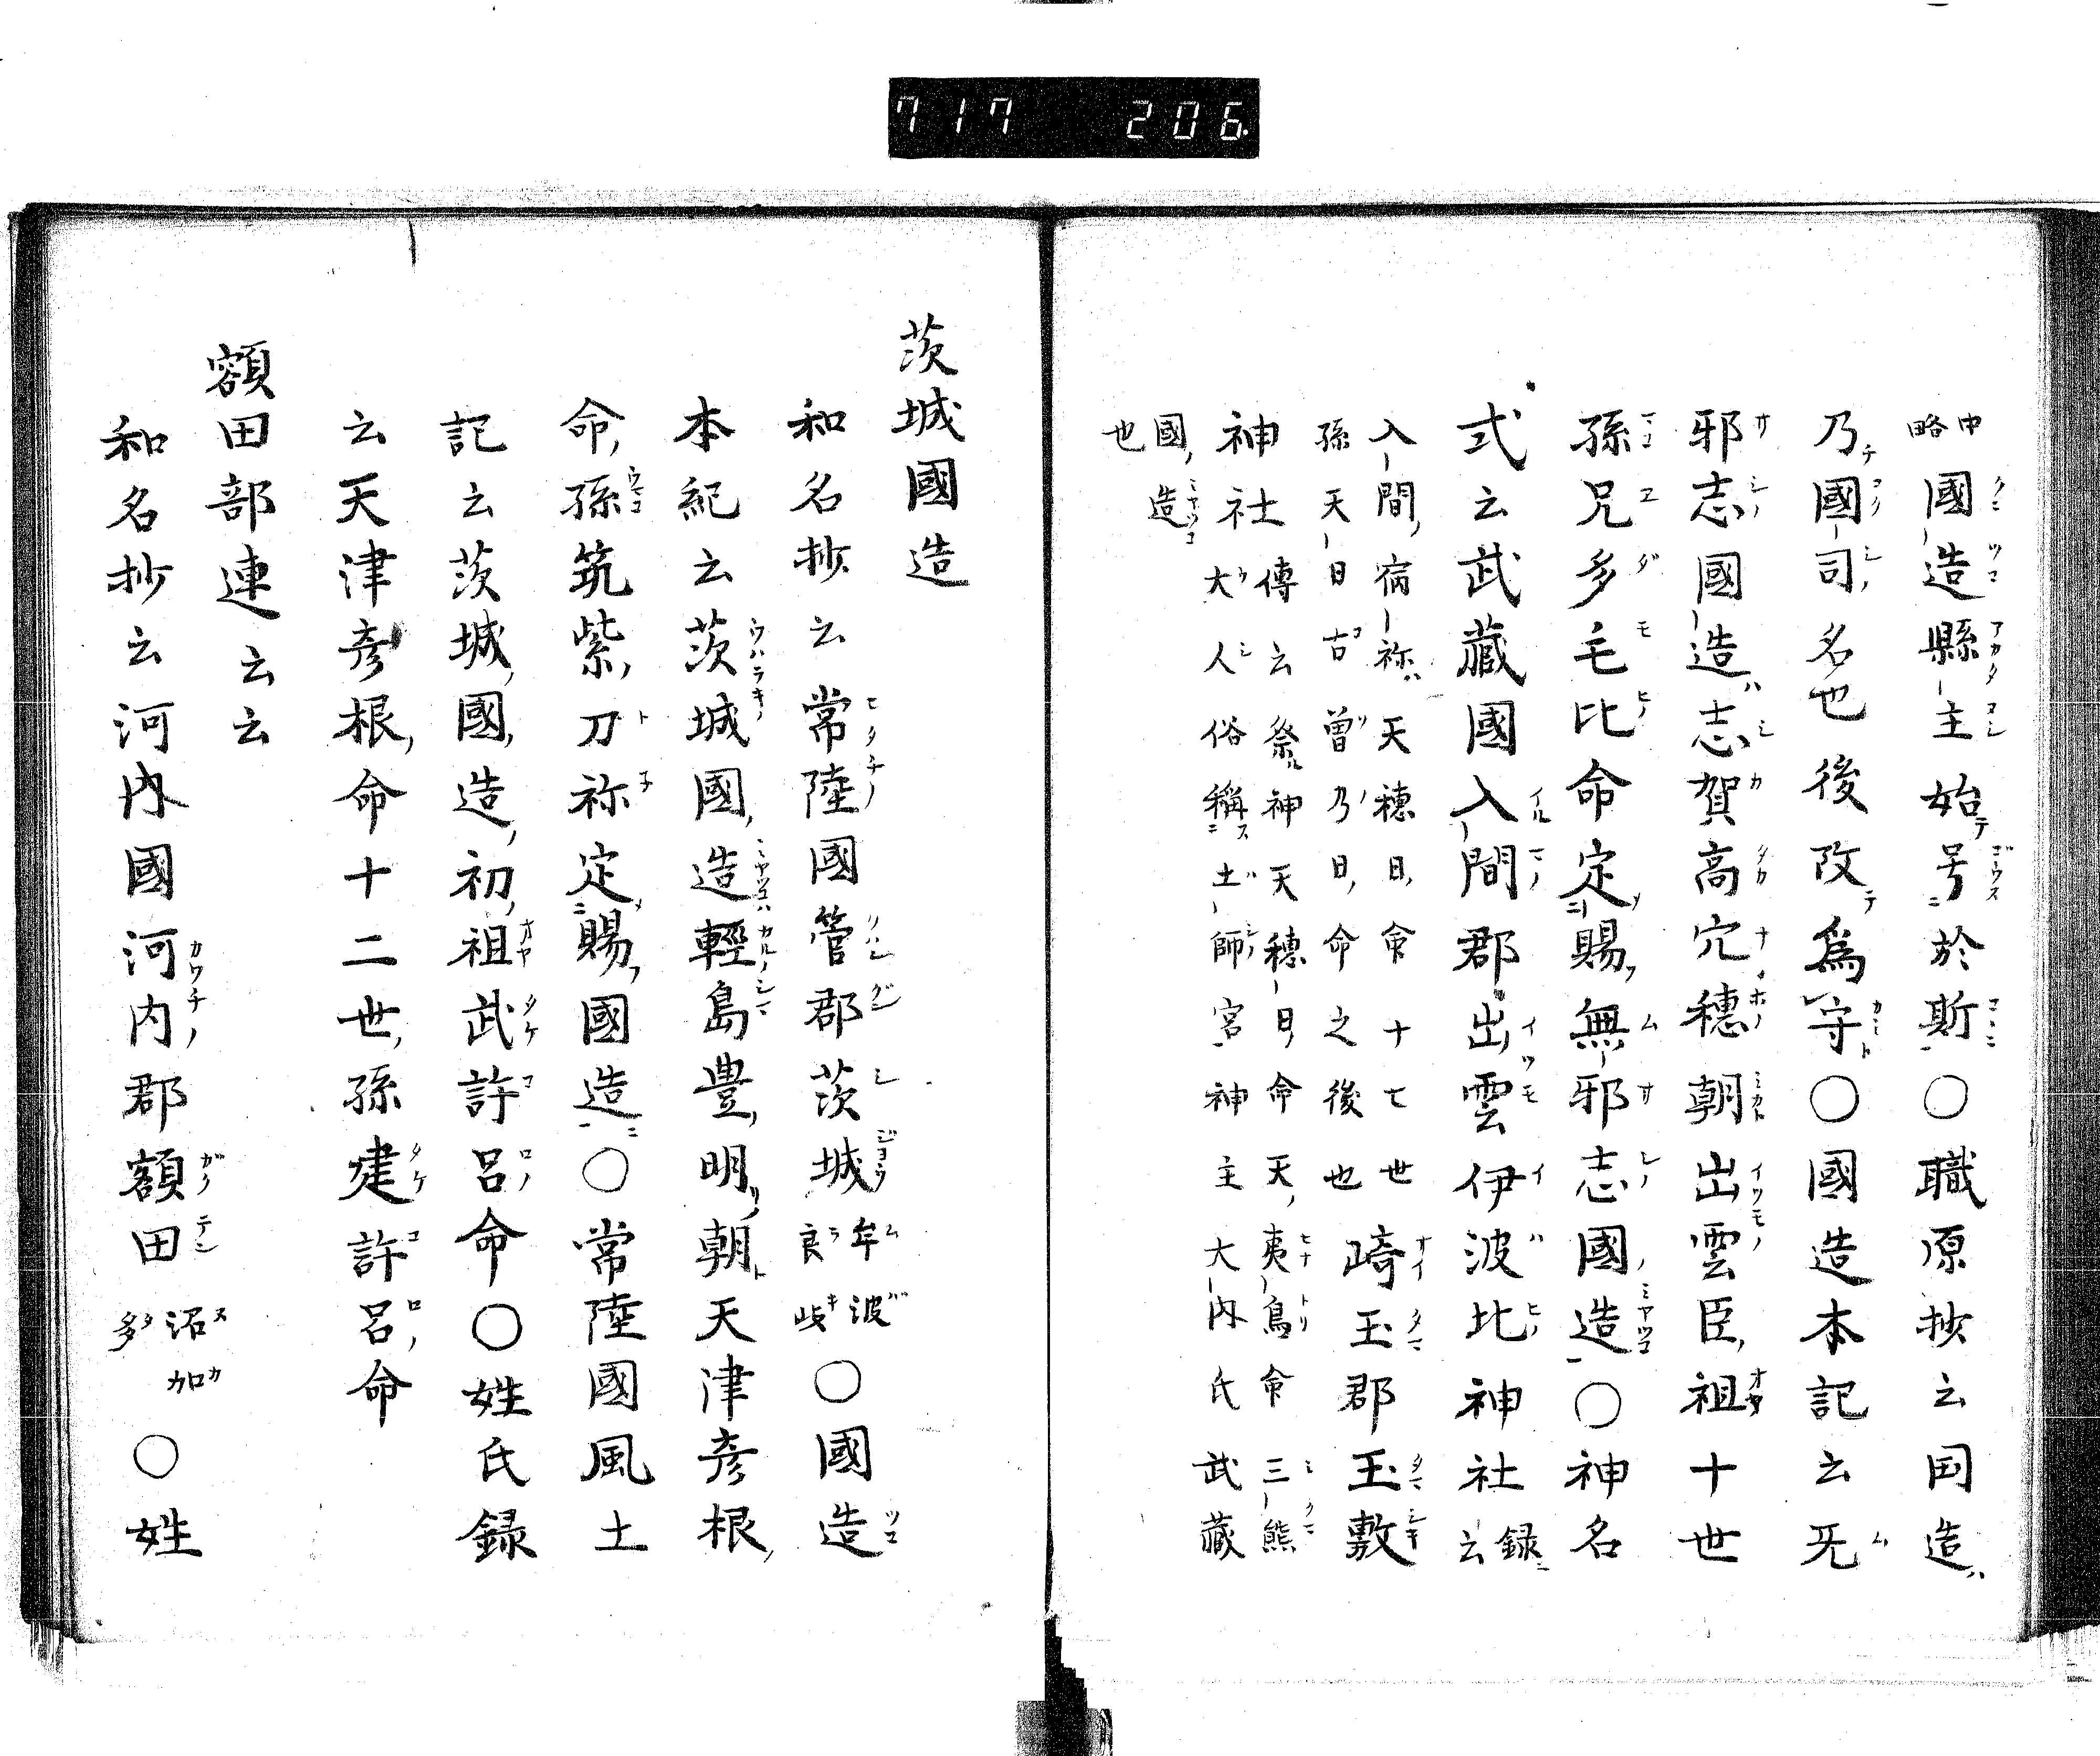 717 206
中略國造縣主始号於斯○職原抄云国造
乃國司名也後改為守○國造本記云旡
邪志國造志賀高穴穂朝出雲臣祖十世
孫兄多毛比命定賜無邪志國造○神名
式云武藏國入間郡出雲伊波比神社録云
入間宿祢天穂日命十七世
孫天日古曽乃日命之後也﨑玉郡玉敷
神社傳云祭神天穂日命天夷鳥命三熊
大人俗稱土師宮神主大内氏武藏
國造
也
茨城國造
和名抄云常陸國管郡茨城牟波良岐○國造
本紀云茨城國造輕島豊明朝天津彦根
命孫筑紫刀祢定賜國造○常陸國風土
記云茨城國造初祖武許呂命○姓氏録
云天津彦根命十二世孫建許呂命
額田部連云云
和名抄云河内國河内郡額田沼加多○姓